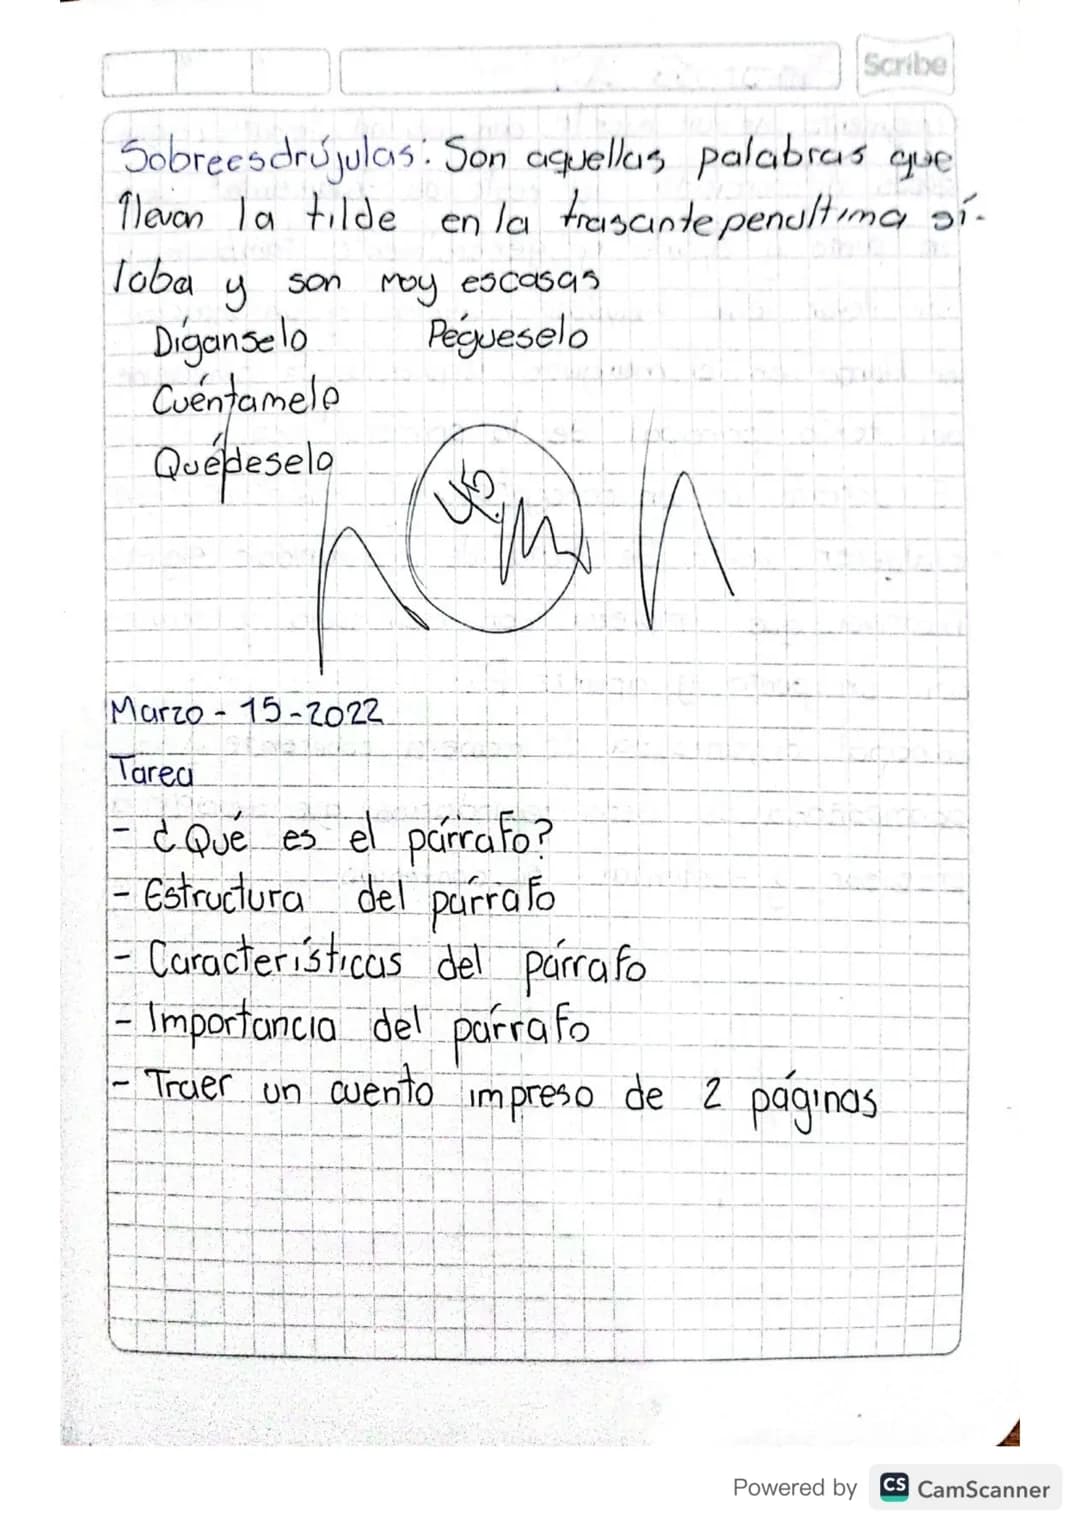 Scribe
Sobreesdrújulas: Son aquellas palabras que
llevan la tilde en la trasantepenultima sí-
laba y son muy escasas
Díganselo Pégueselo
Cuéntamelo
Quépeselo
4.5
Marzo - 15 - 2022
Tarea
- ¿Qué es el párrafo?
- Estructura del párrafo
- Características del párrafo
- Importancia del párrafo
- Traer un cuento impreso de 2 páginas
Powered by CS CamScanner